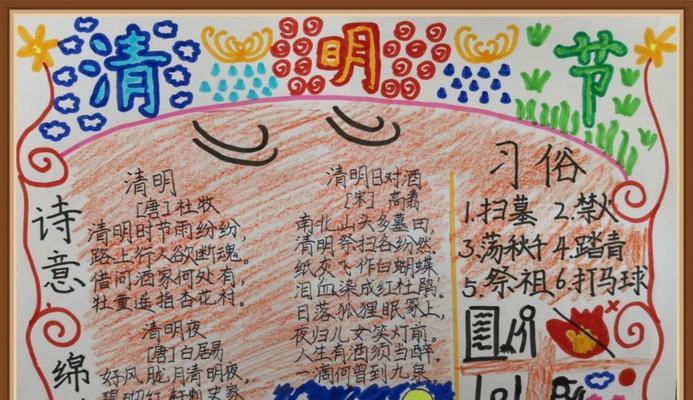 清明节
诗意绵
清明
[唐]杜牧
清明时节雨纷纷,
路上行人欲断魂。
借问酒家何处有,
牡童遥指杏花村。
清明夜
[唐]白居易
好风胧月清明夜,
清明日对酒
[宋] 高翥
南北山头多墓田,
清明祭扫各纷然。
纸灰飞作白蝴蝶
泪血染成红杜鹃。
日落狐狸眠冢上,
夜归儿女笑灯前。
人生有酒须当醉,
一滴何曾到九泉。
习俗
1.扫墓 2.禁火
3.荡秋千 4.踏青
5.祭祖 6.打马球